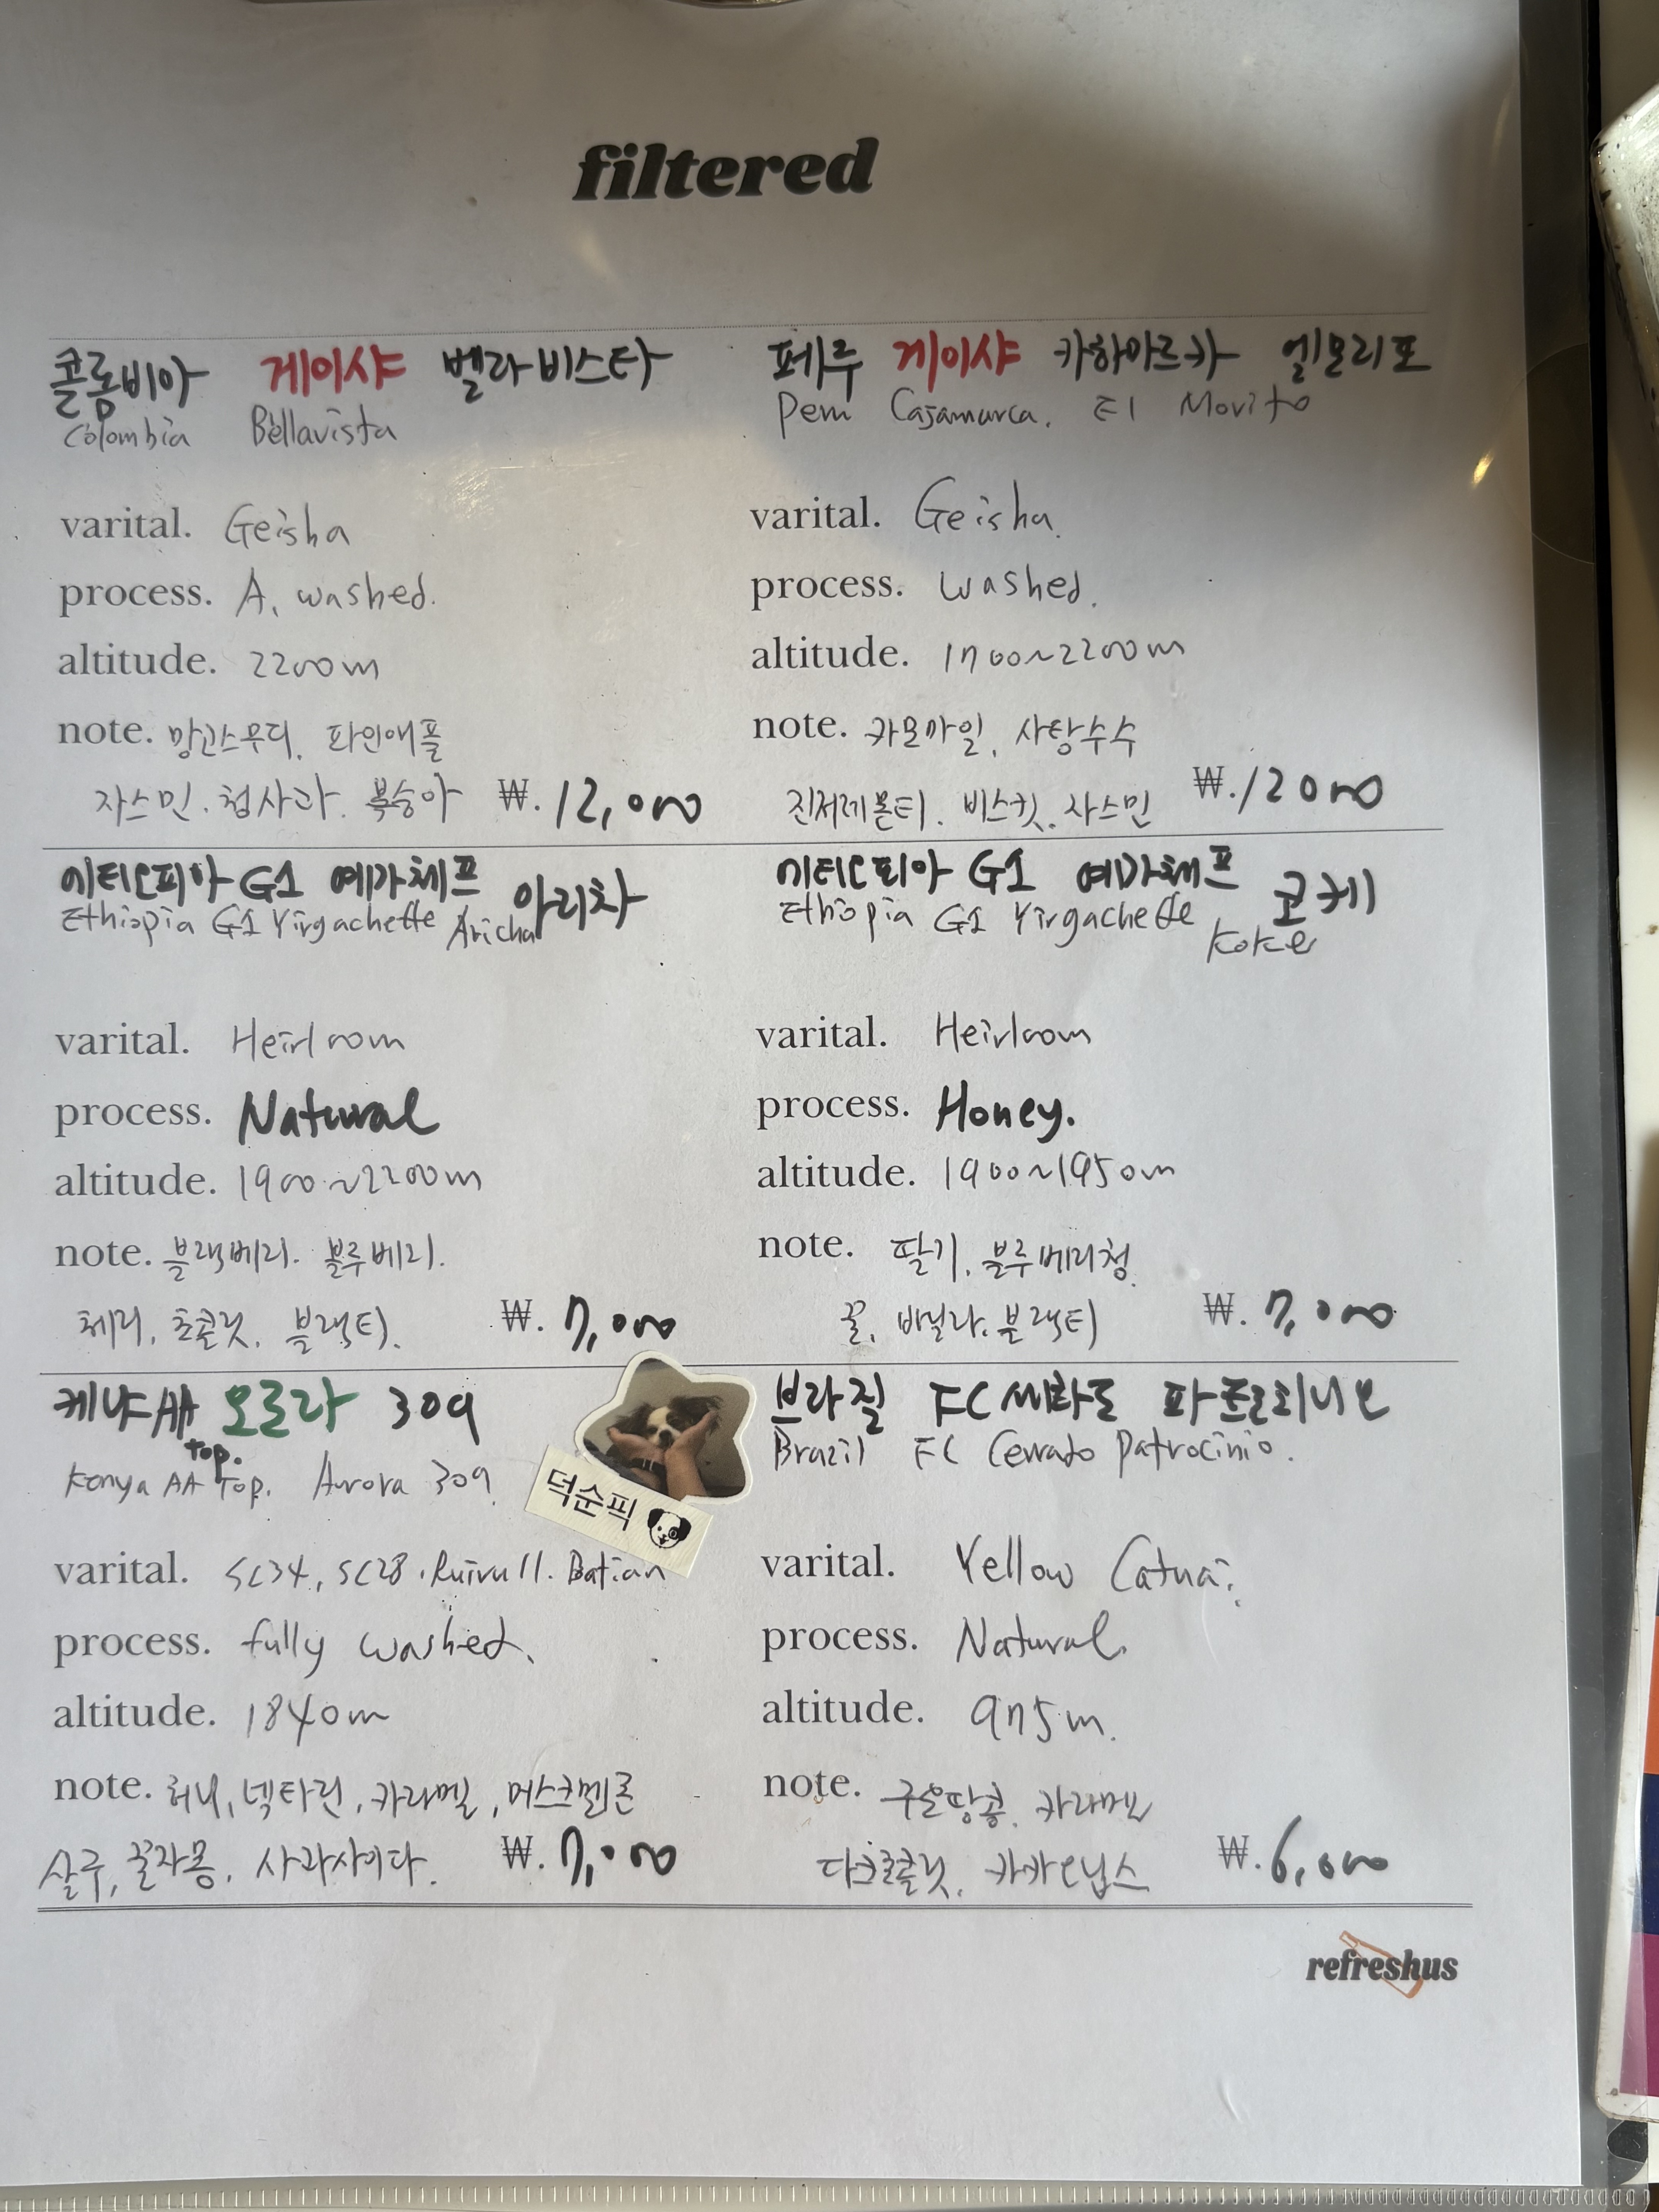 filtered
콜롬비아 게이샤 벨라비스타
Colombia Bellavista
varital. Geisha
process. A. washed.
altitude. 2200m
note. 망고스무디. 파인애플
자스민. 청사과. 복숭아 ₩. 12,000
페루 게이샤 카하마르카 엘모리또
Peru Cajamarca. El Morito
varital. Geisha.
process. washed.
altitude. 1700~2200m
note. 카모마일. 사탕수수
진저레몬티. 비스킷. 자스민 ₩. 12000
에티오피아 G1 예가체프 아리차
Ethiopia G1 Yirgacheffe Aricha
varital. Heirloom
process. Natural
altitude. 1900~2200m
note. 블랙베리. 블루베리.
체리. 초콜릿. 블랙티. ₩. 7,000
에티오피아 G1 예가체프 코케
Ethiopia G1 Yirgacheffe Koke
varital. Heirloom
process. Honey.
altitude. 1900~1950m
note. 딸기. 블루베리청.
꿀. 바닐라. 블랙티 ₩. 7,000
케냐 AA top. 오로라 309
Kenya AA Top. Aurora 309.
덕순픽
varital. SL34, SL28. Ruiru 11. Batian
process. fully washed.
altitude. 1840m
note. 허니, 넥타린, 카라멜, 머스크멜론
살구, 꿀자몽. 사과사이다. ₩. 7,000
브라질 FC 쎄하도 파트로치니오
Brazil FC Cerrado Patrocinio.
varital. Yellow Catuai.
process. Natural.
altitude. 975m.
note. 구운땅콩. 카라멜
다크초콜릿. 카카오닙스 ₩. 6,000
refreshus